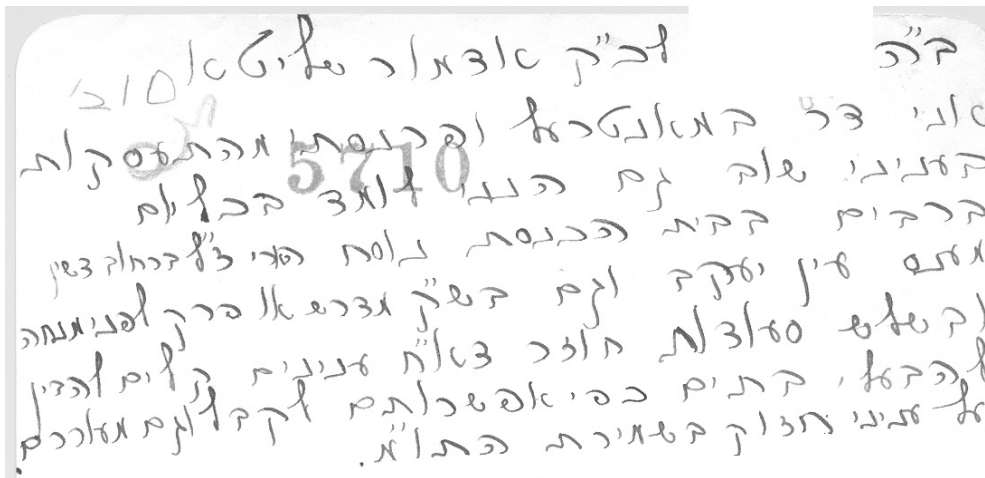 ב"ה לכ"ק אדמור שליטא
סוב'
אני דר במאנטרעל ופרנסתי מהתעסקות
5710
בעניני שוב גם הנני לומד בכל יום
ברבים בבית הכנסת נוסח הארי ז"ל ברחוב
מעט עין יעקב וגם בש"ק מדרש או פרק לפני מנחה
ובשלש סעודות חוזר דא"ח ענינים קלים
להבעלי בתים כפי אפשרותם לקבל וגם מעוררם
על עניני חזוק בשמירת התו"מ.